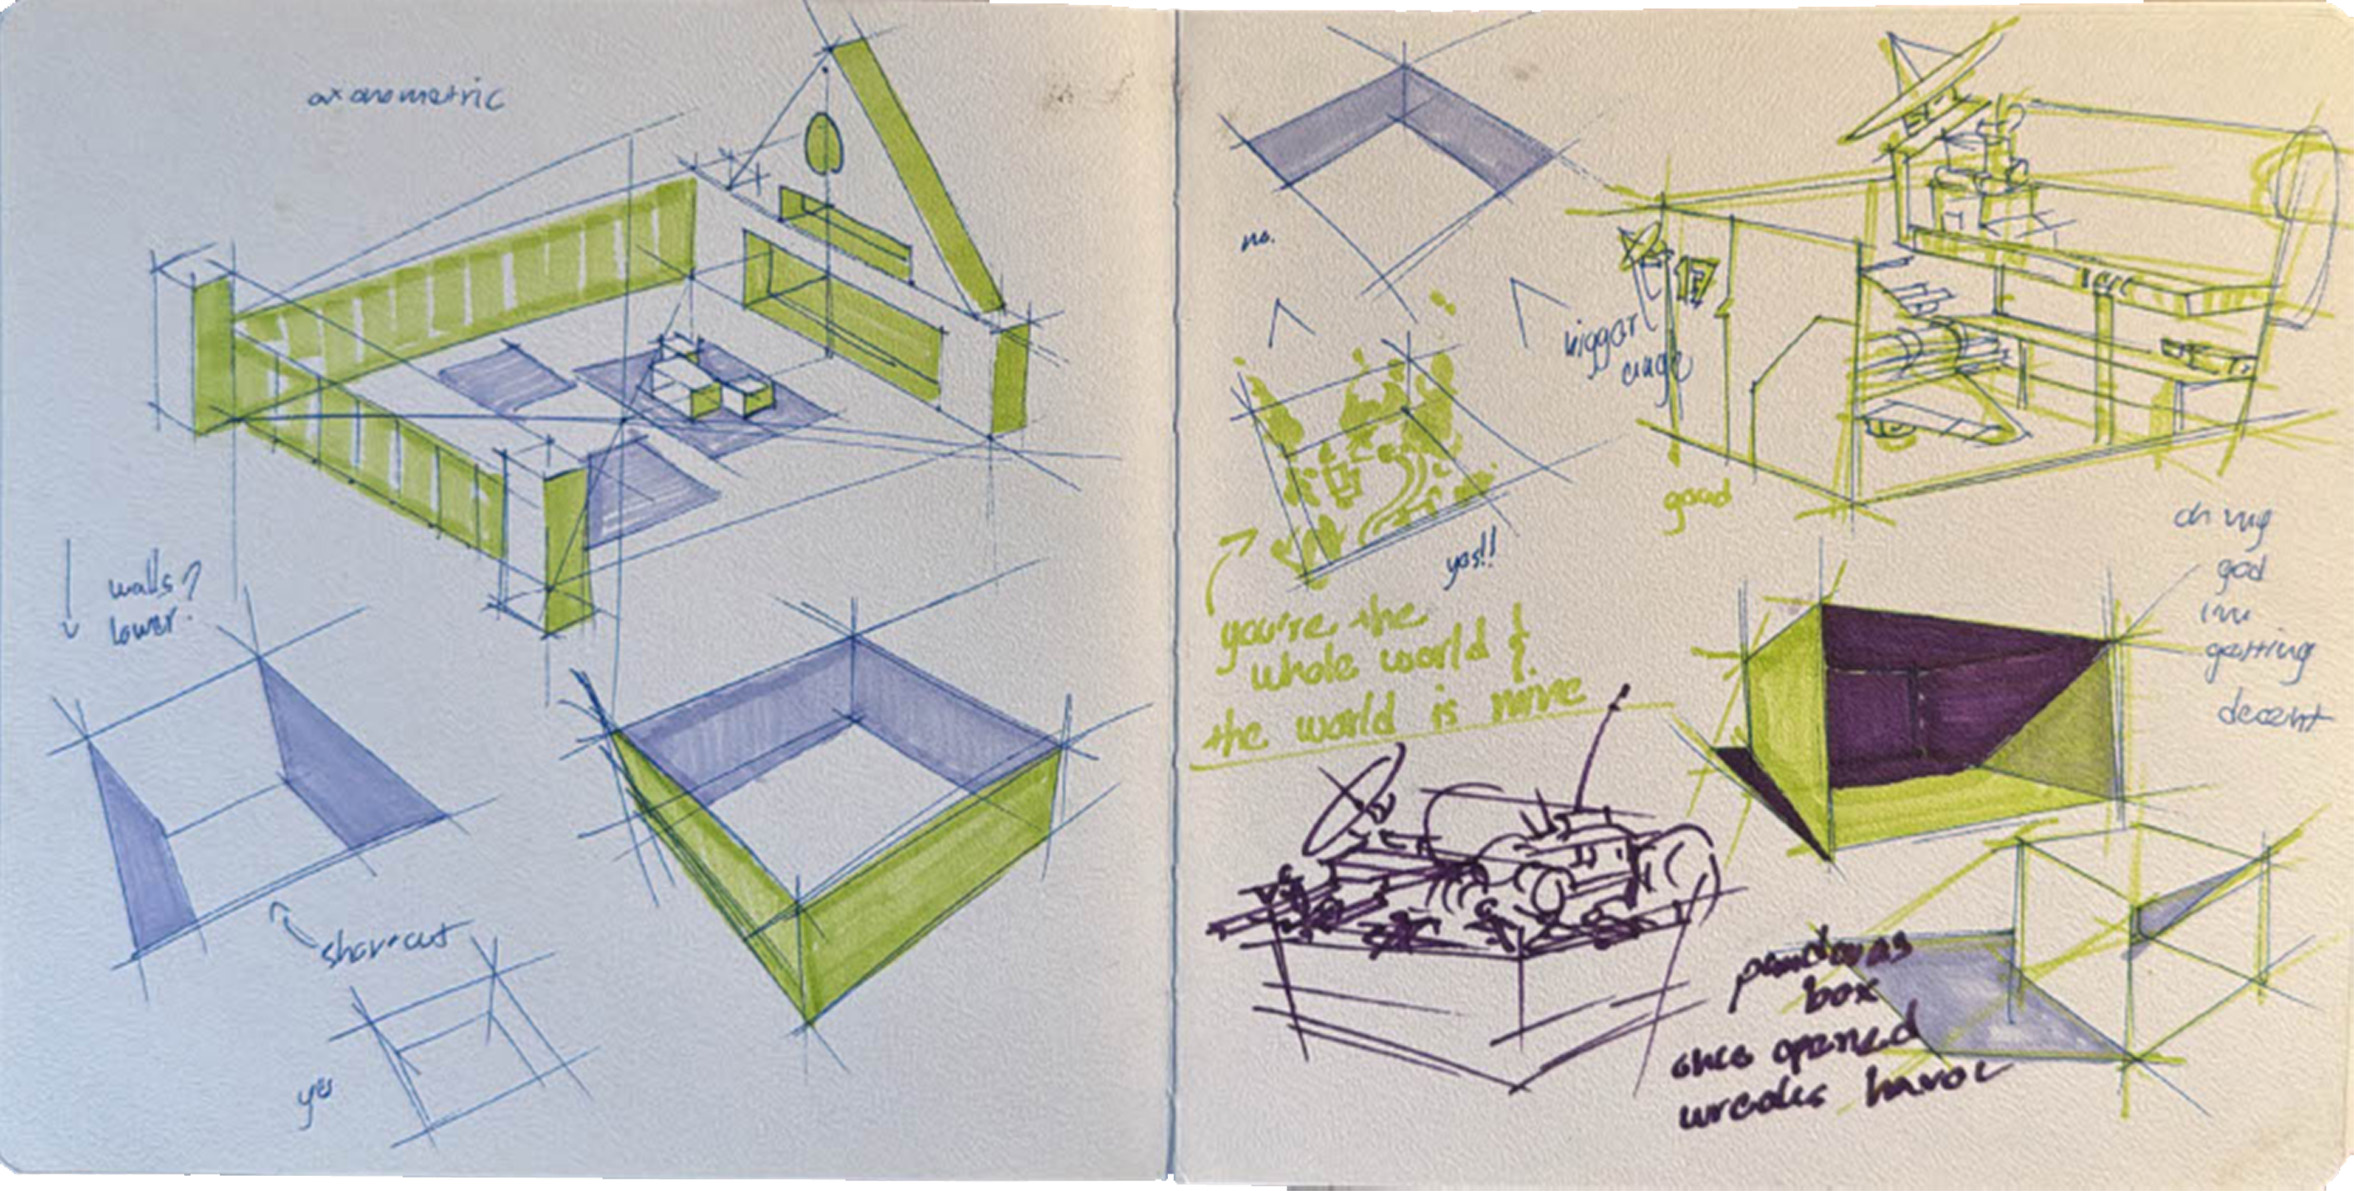 axonometric
walls?
lower?
shortcut
yes
no.
bigger
yes!!
you're the
whole world &
the world is mine
good
oh my
god
im
getting
decent
pandoras
box
once opened
wreaks havoc